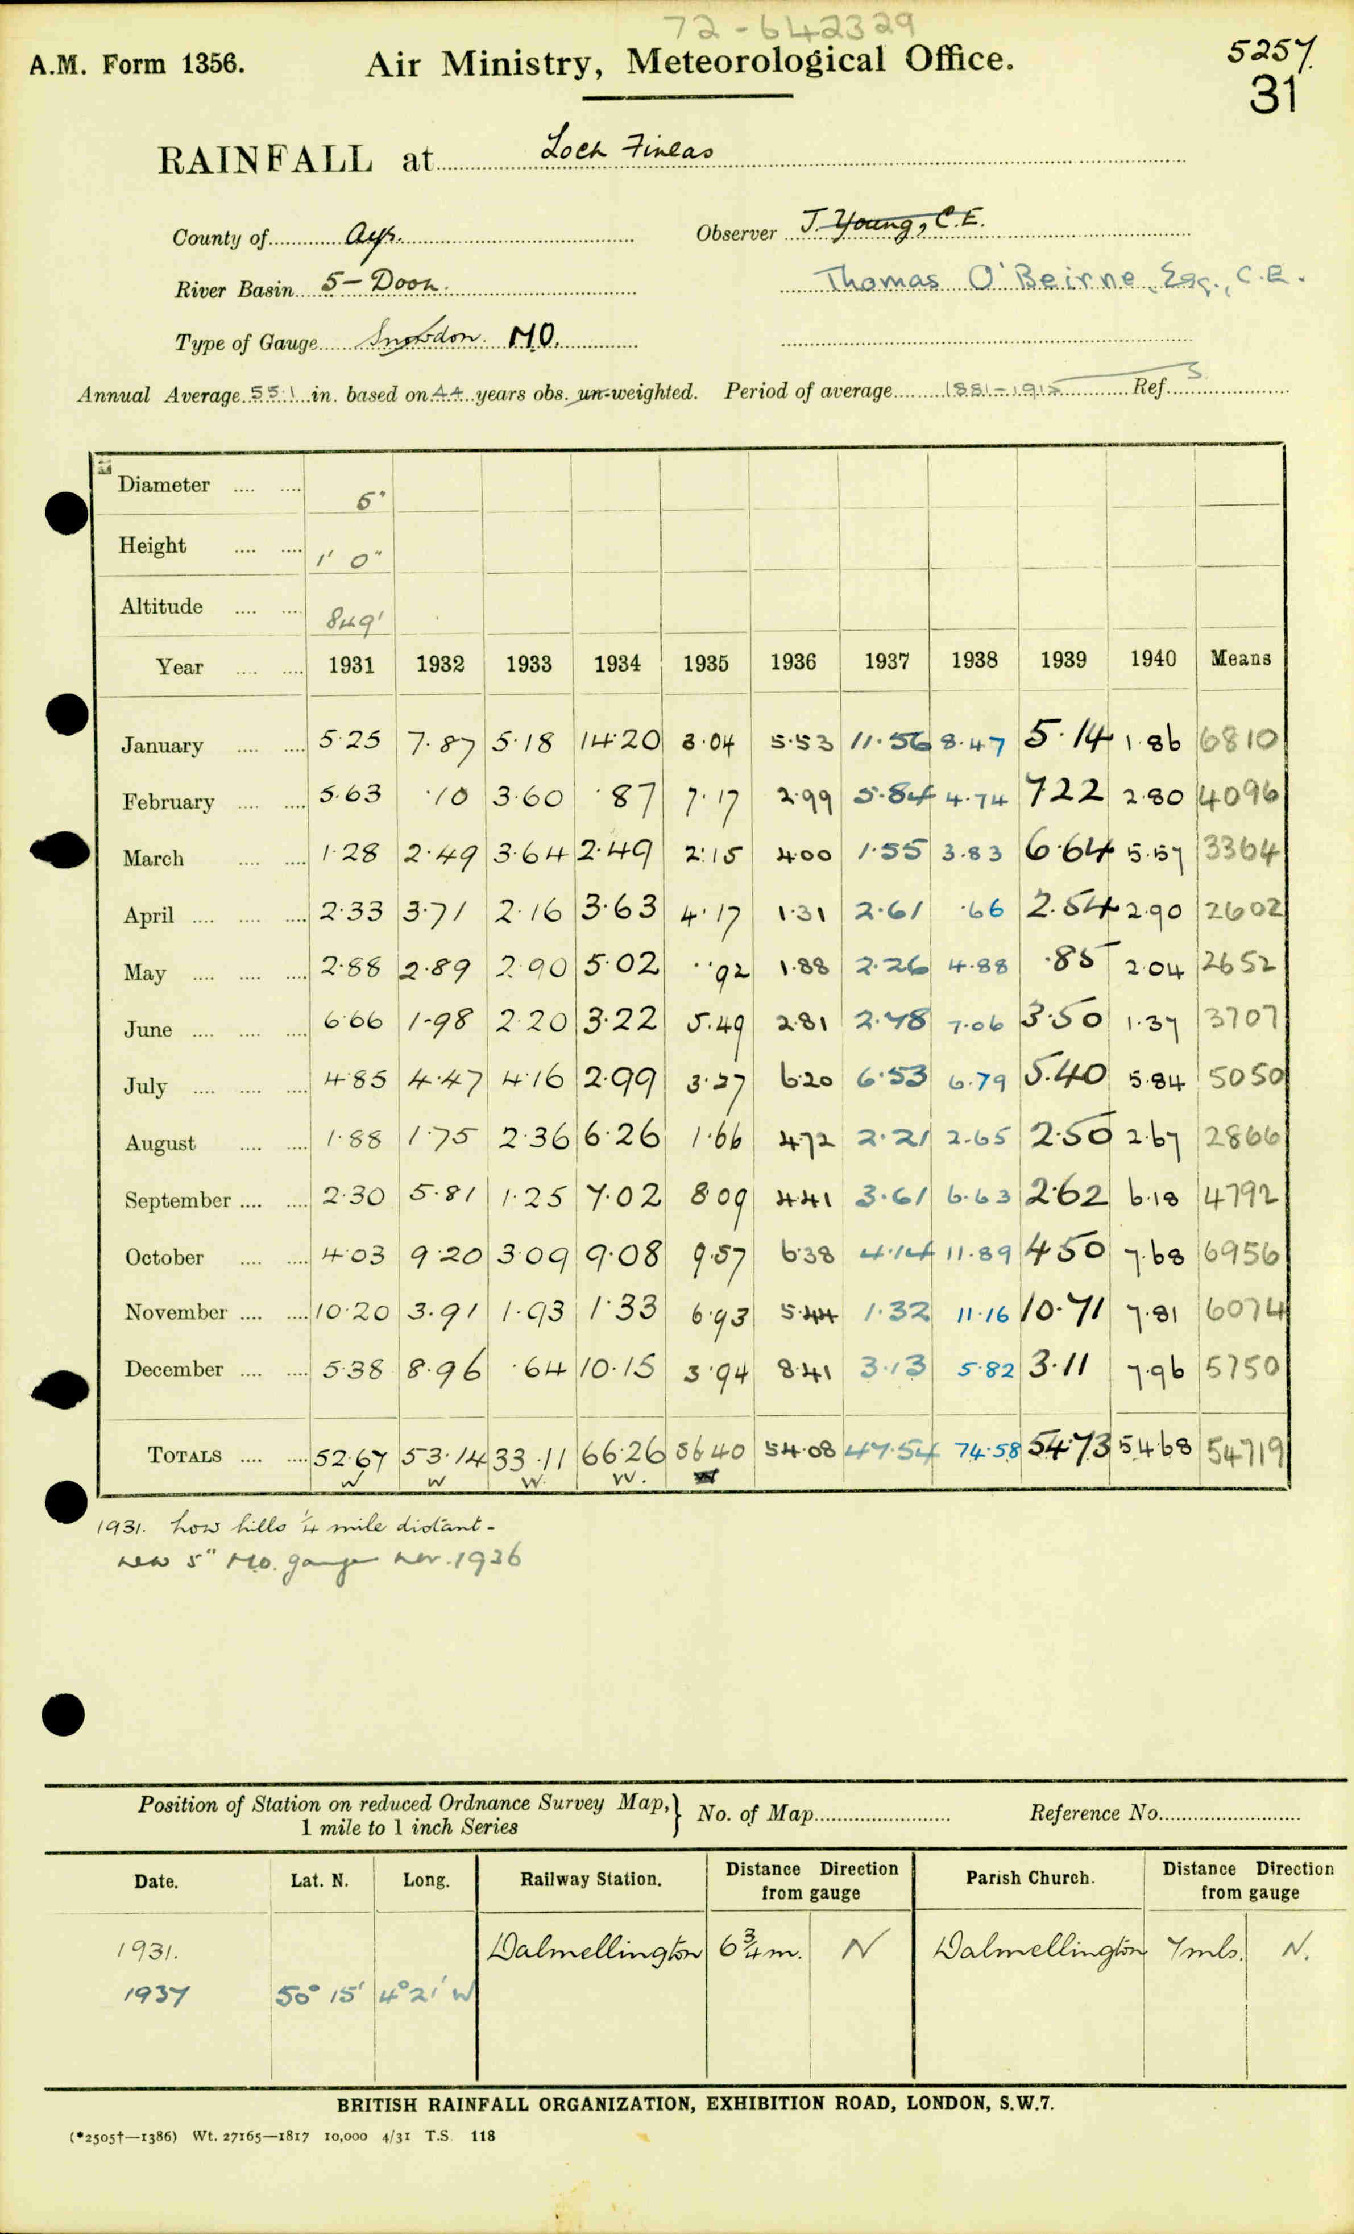 72-642329
A.M. Form 1356. Air Ministry, Meteorological Office. 5257
31
RAINFALL at Loch Finlas
County of Ayr. Observer J. Young, C.E.
River Basin 5-Doon. Thomas O'Beirne, Esq., C.E.
Type of Gauge Snowdon. M.O.
Annual Average 55.1 in. based on 44 years obs. un-weighted. Period of average 1881-1915 Ref. S
Diameter 5"
Height 1' 0"
Altitude 849'
Year 1931 1932 1933 1934 1935 1936 1937 1938 1939 1940 Means
January 5.25 7.87 5.18 14.20 3.04 5.53 11.56 8.47 5.14 1.86 6810
February 5.63 .10 3.60 .87 7.17 2.99 5.84 4.74 7.22 2.80 4096
March 1.28 2.49 3.64 2.49 2.15 4.00 1.55 3.83 6.64 5.57 3364
April 2.33 3.71 2.16 3.63 4.17 1.31 2.61 .66 2.54 2.90 2602
May 2.88 2.89 2.90 5.02 .92 1.88 2.26 4.88 .85 2.04 2652
June 6.66 1.98 2.20 3.22 5.49 2.81 2.78 7.06 3.50 1.37 3707
July 4.85 4.47 4.16 2.99 3.27 6.20 6.53 6.79 5.40 5.84 5050
August 1.88 1.75 2.36 6.26 1.66 4.72 2.21 2.65 2.50 2.67 2866
September 2.30 5.81 1.25 7.02 8.09 4.41 3.61 6.63 2.62 6.18 4792
October 4.03 9.20 3.09 9.08 9.57 6.38 4.14 11.89 4.50 7.68 6956
November 10.20 3.91 1.93 1.33 6.93 5.44 1.32 11.16 10.71 7.81 6074
December 5.38 8.96 .64 10.15 3.94 8.41 3.13 5.82 3.11 7.96 5750
TOTALS 52.67 53.14 33.11 66.26 56.40 54.08 47.54 74.58 54.73 54.68 54719
W W W. W. W
1931. Low hills 1/4 mile distant-
New 5" M.O. gauge Nov. 1936
Position of Station on reduced Ordnance Survey Map,} No. of Map Reference No.
1 mile to 1 inch Series
Date. Lat. N. Long. Railway Station. Distance Direction from gauge Parish Church. Distance Direction from gauge
1931. Dalmellington 6 3/4 m. N Dalmellington 7 mls. N.
1937 50° 15' 4° 21' W
BRITISH RAINFALL ORGANIZATION, EXHIBITION ROAD, LONDON, S.W.7.
(*2505†—1386) Wt. 27165—1817 10,000 4/31 T.S. 118